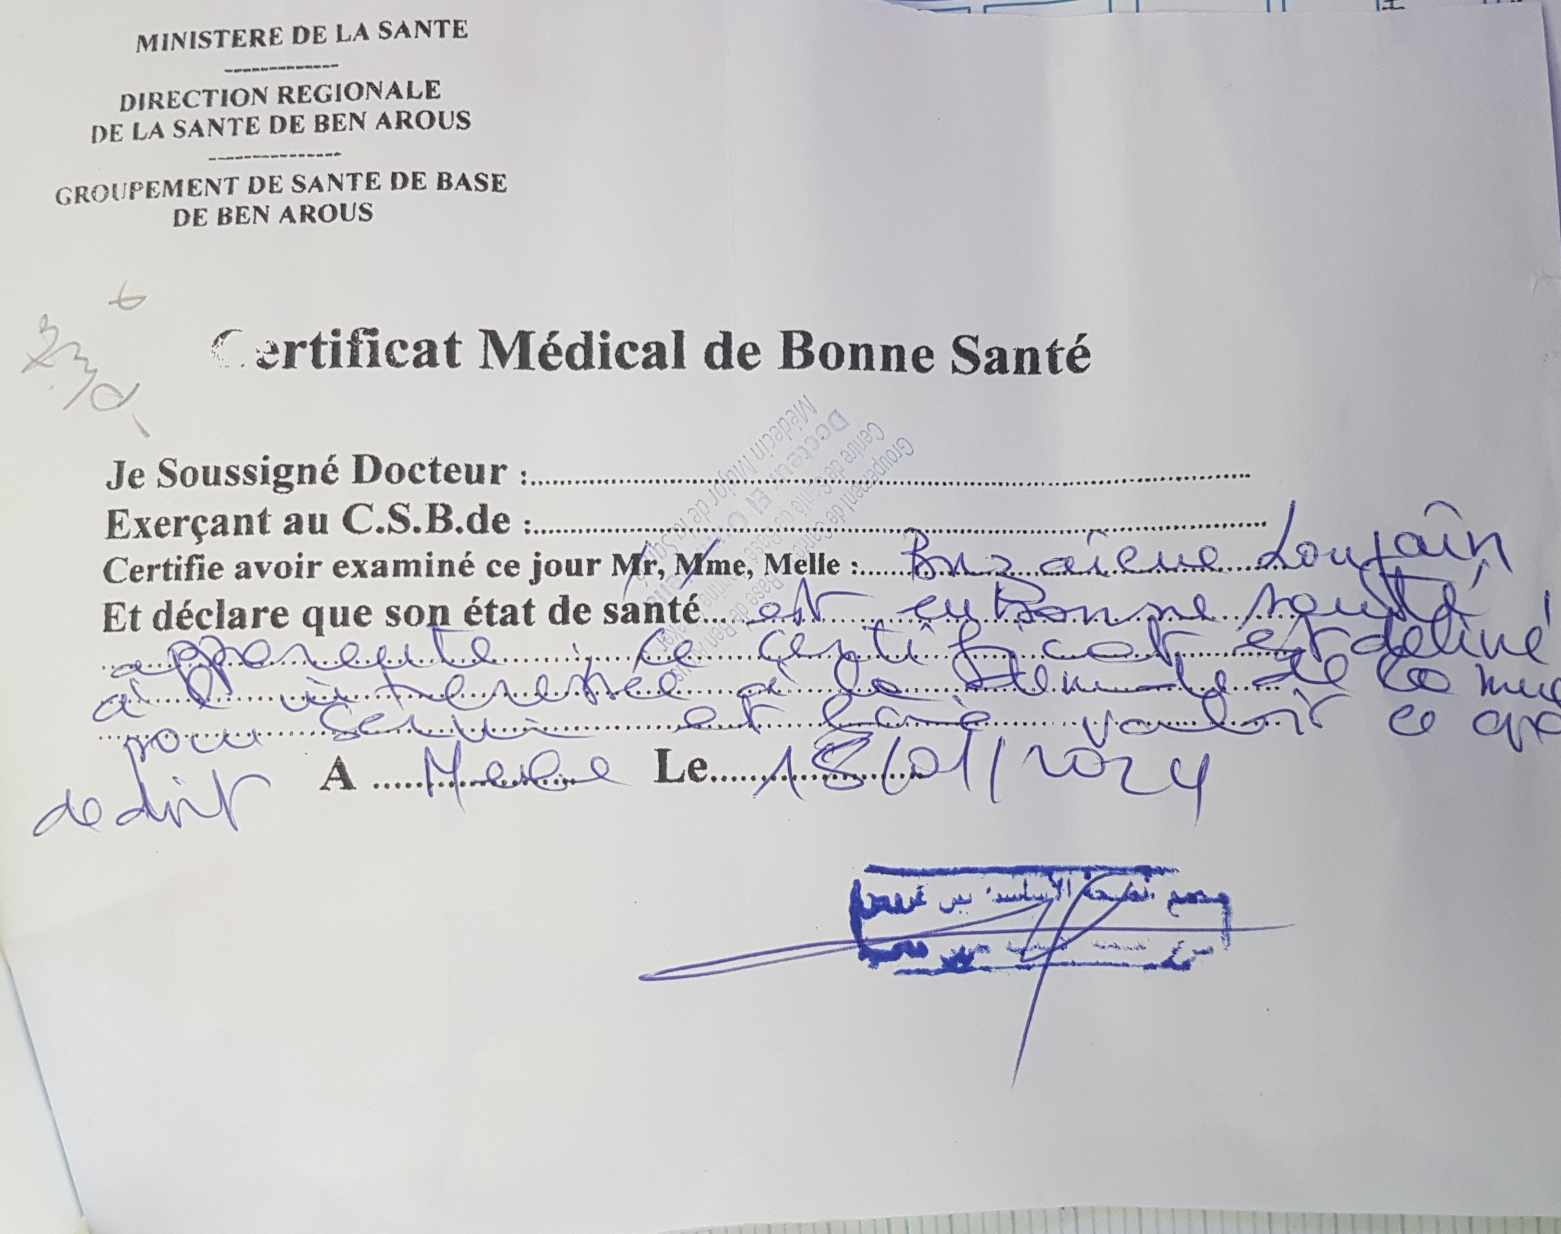 MINISTERE DE LA SANTE
DIRECTION REGIONALE
DE LA SANTE DE BEN AROUS
GROUPEMENT DE SANTE DE BASE
DE BEN AROUS
Certificat Médical de Bonne Santé
Je Soussigné Docteur :
Exerçant au C.S.B.de :
Certifie avoir examiné ce jour Mr, Mme, Melle : Loujaîn
Et déclare que son état de santé est en Bonne santé
apparente, ce certificat est délivré
à l'intéressée à la demande de
pour servir et faire valoir ce que
de droit A Le 18/01/2024
Médecin Major de la Santé
Docteur El
Centre de Santé de Base
Groupement de Santé de Base de Ben
مجمع الصحة الأساسية بن عروس